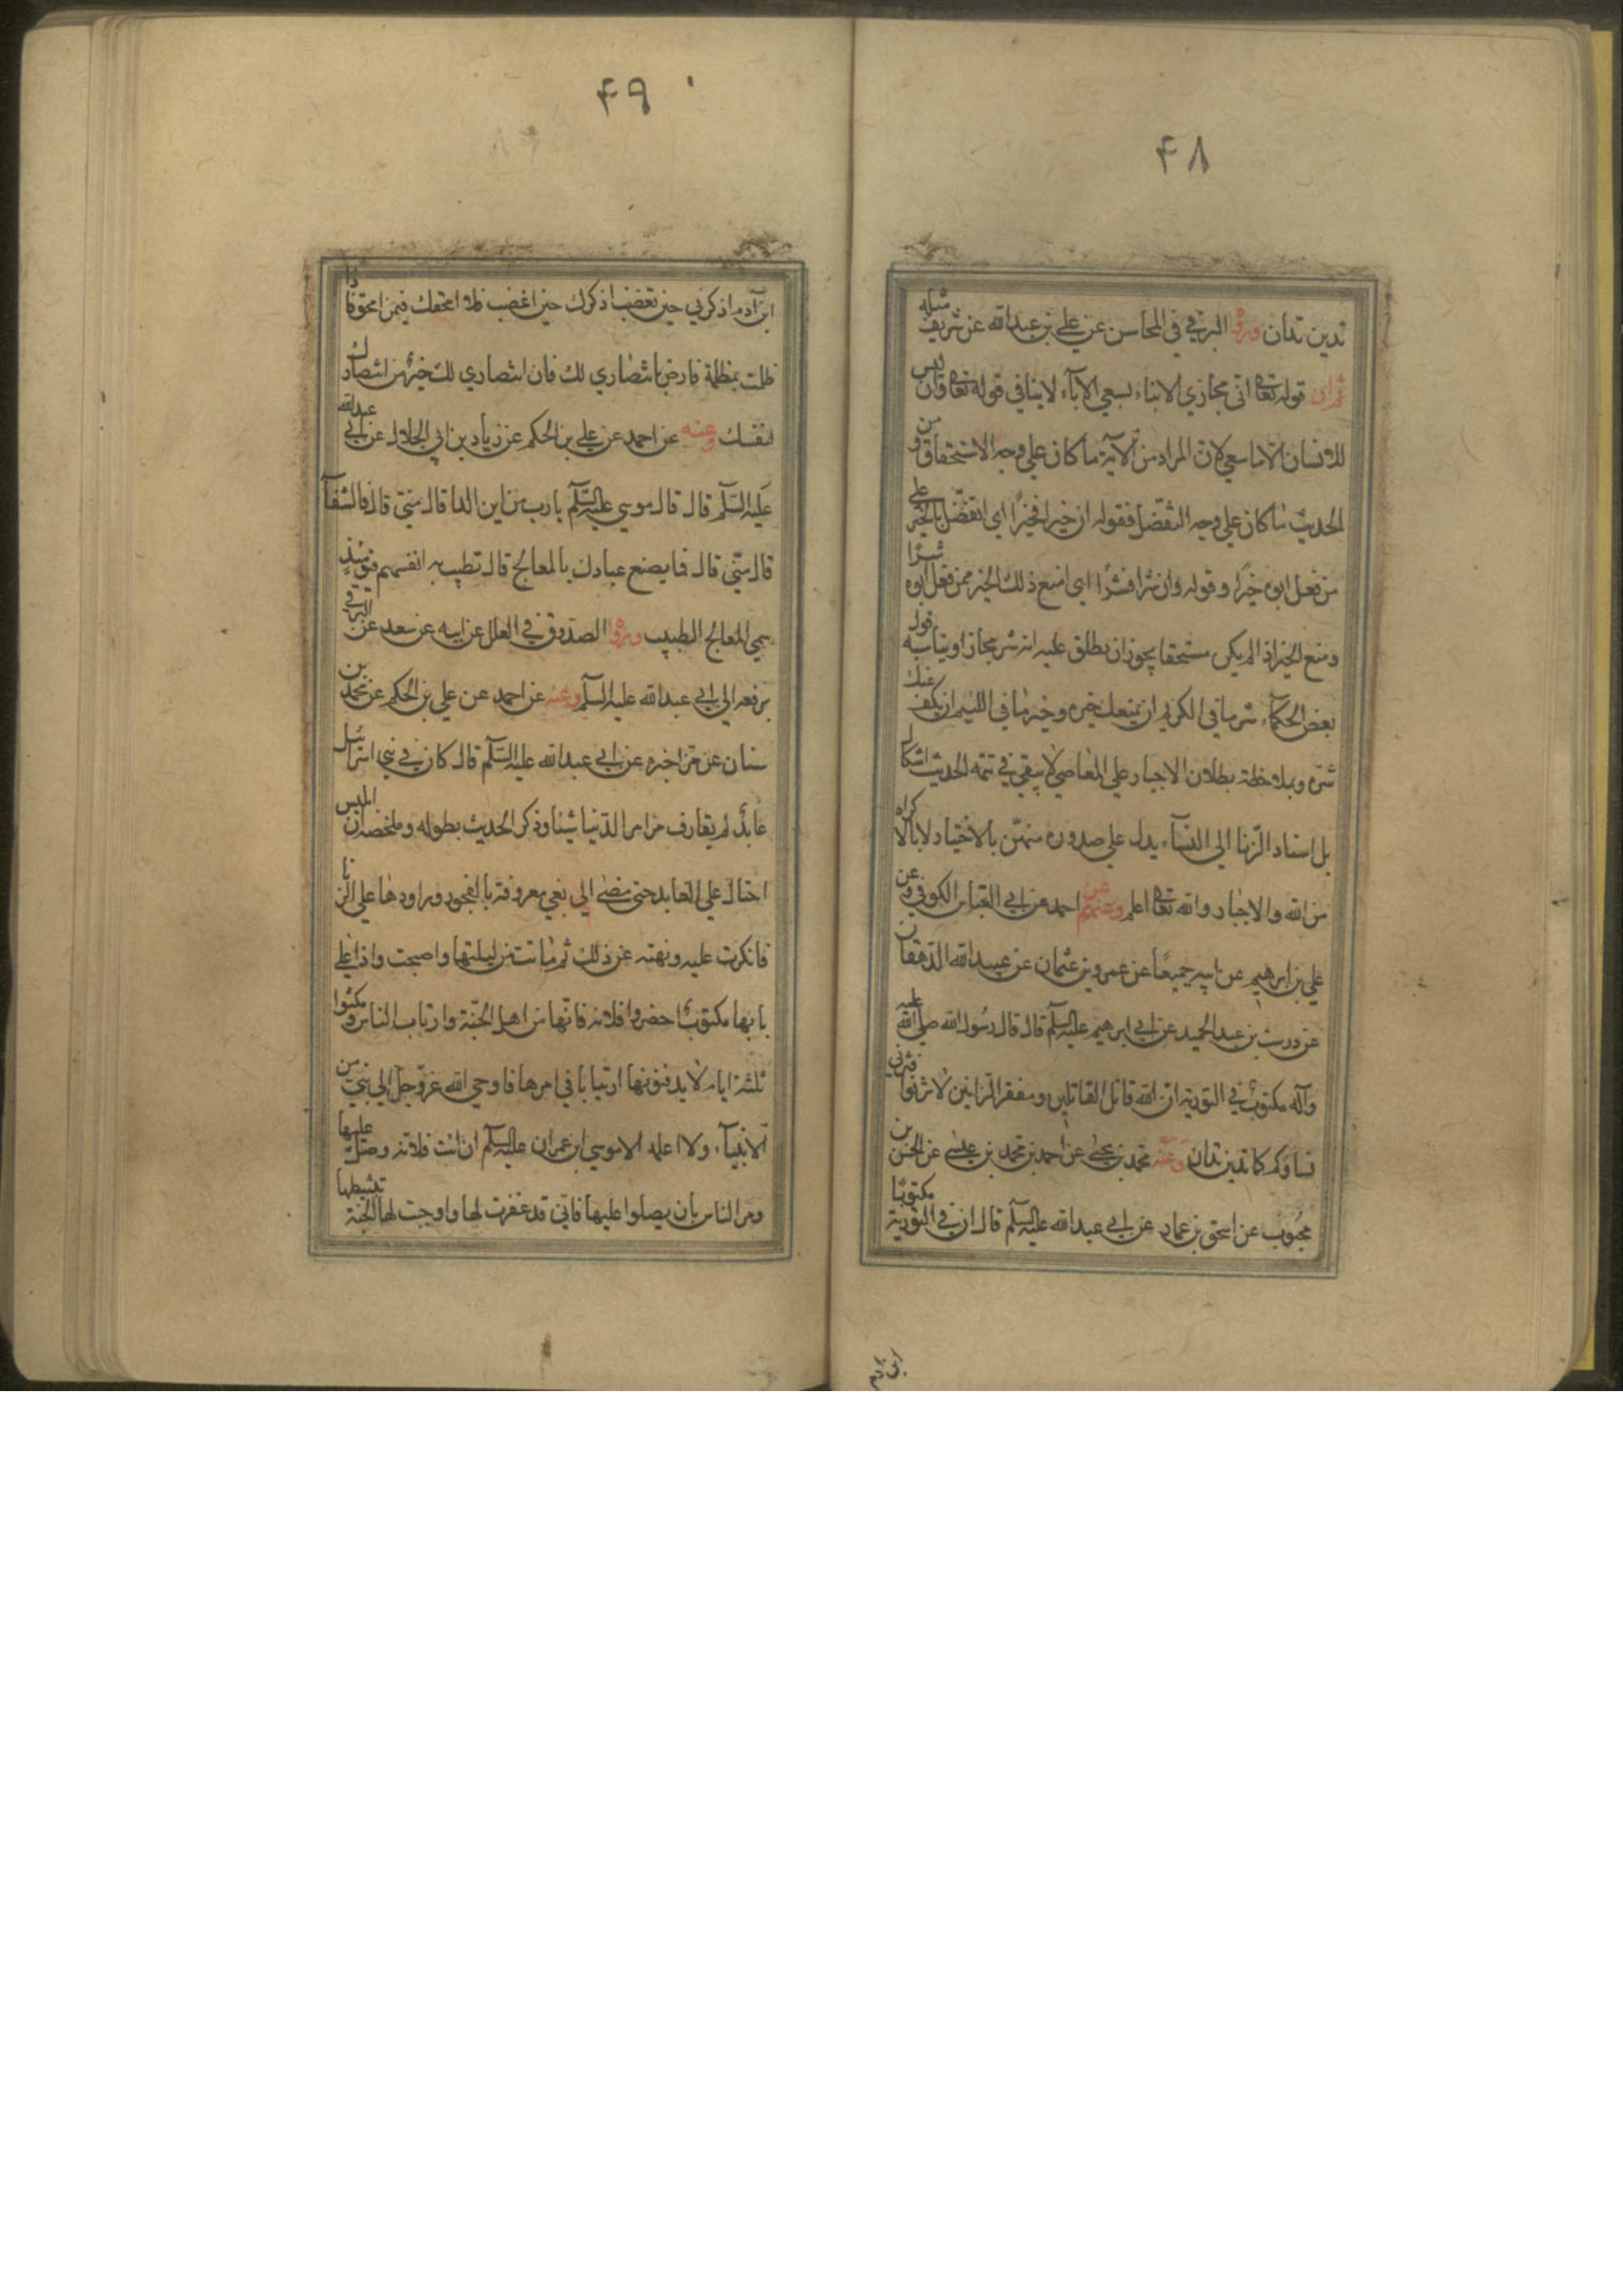 ۴۸
تدين تدان وروى البرقي في المحاسن عن علي بن عبدالله عن شريف مثله
ثم ان قوله تعالى اني مجازي الابناء بسعي الآباء لا ينافي قوله تعالى وان ليس
للانسان الا ما سعى لان المراد من الآية ما كان على وجه الاستحقاق و من
الحديث ما كان على وجه التفضل فقوله ان خيرا فخيرًا اي اتفضل بالخير على
من فعل ابوه خيرًا و قوله وان شرا فشرًا اي امنع ذلك الخير ممن فعل ابوه شرًا
ومنع الخير اذا لم يكن مستحقا يجوز ان يطلق عليه انه شر مجازا ويناسبه قول
بعض الحكماء شر ما في الكريم ان يمنعك خيره وخير ما في اللئيم ان يكف عنك
شره وبملاحظة بطلان الاجبار على المعاصي لا يبقى في تتمة الحديث اشكال
بل اسناد الزنا الى النساء يدل على صدوره منهن بالاختيار ولا بالاكراه
من الله والاجبار والله تعالى اعلم وعنهم عن احمد عن ابي العباس الكوفي وعن
علي بن ابرهيم عن ابيه جميعًا عن عمرو بن عثمان عن عبيد الله الدهقان
عن درست بن عبد الحميد عن ابي ابرهيم عليه السلم قال قال رسول الله صلى الله عليه
وآله مكتوب في التورية ان الله قاتل القاتلين ومفقر الزانين لا تزنوا فتزني
نساؤكم كما تدين تدان وعنه محمد بن يحيى عن احمد بن محمد بن عيسى عن الحسن بن
محبوب عن اسحق بن عمار عن ابي عبدالله عليه السلم قال ان في التورية مكتوبًا
ابن آدم
۴۹
ابن آدم اذكرني حين تغضب اذكرك حين اغضب فلا امحقك فيمن امحق فاذا
ظلمت بمظلمة فارض بانتصاري لك فان انتصاري لك خير من انتصارك
لنفسك وعنه عن احمد عن علي بن الحكم عن زياد بن ابي الحلال عن ابي عبدالله
عليه السلم قال قال موسى عليه السلم يا رب من اين الداء قال مني قال فالشفآء
قال مني قال فما يصنع عبادك بالمعالج قال تطيب به انفسهم فيومئذٍ
سمي المعالج الطبيب وروى الصدوق في العلل عن ابيه عن سعد عن البرقي
يرفعه الى ابي عبدالله عليه السلم وعنه عن احمد عن علي بن الحكم عن محمد بن
سنان عن من اخبره عن ابي عبدالله عليه السلم قال كان في بني اسرائيل
عابدٌ لم يقارف من امر الدنيا شيئا وذكر الحديث بطوله وملخصه ان ابليس
احتال على العابد حتى مضى الى بغي معروفة بالفجور وراودها على الزنا
فانكرت عليه ونهته عن ذلك ثم ماتت من ليلتها واصبحت واذا على
بابها مكتوبٌ احضروا فلانة فانها من اهل الجنة وارتاب الناس ومكثوا
ثلثة ايام لا يدفنونها ارتيابا في امرها فاوحى الله عز وجل الى نبي من
الانبيآء ولا اعلمه الا موسى ابن عمران عليه السلم ان ائت فلانة وصل عليها
ومر الناس بان يصلوا عليها فاني قد غفرت لها واوجبت لها الجنة بتثبيطها